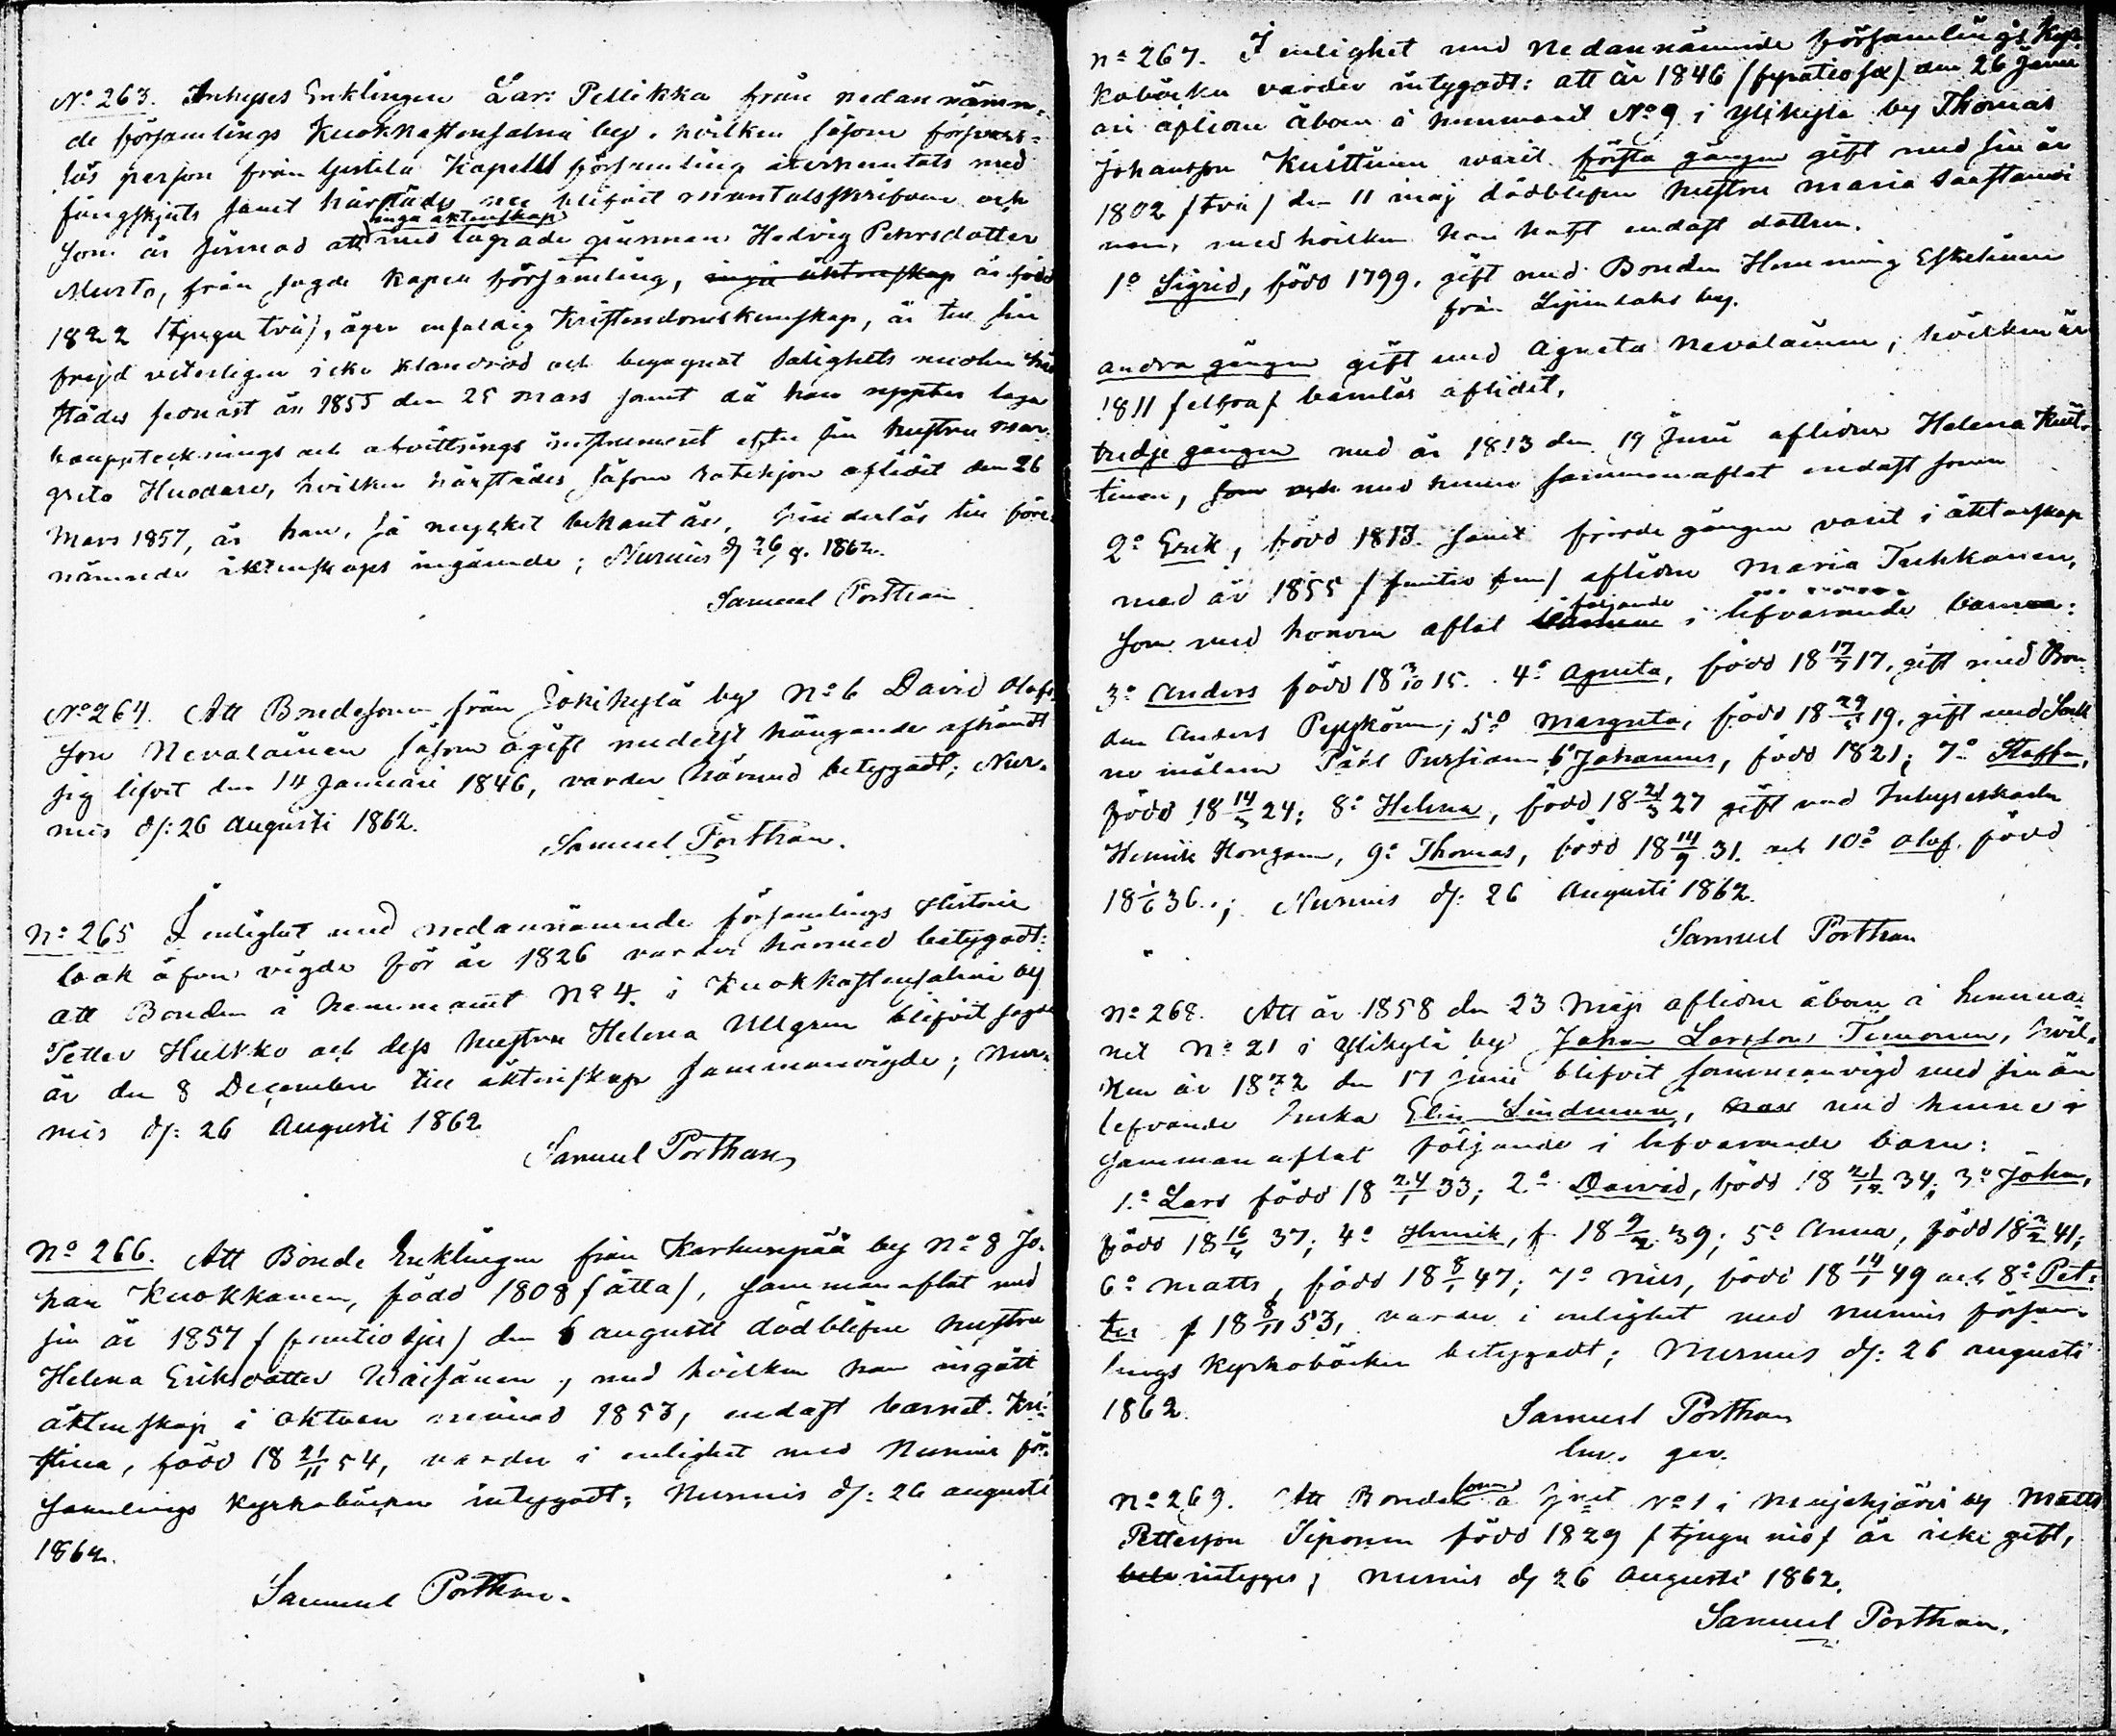 No 263. Inhyses Enklingen Lars Pellikka från nedannämn-
de församlings Kuokkastensalmi by, hvilken såsom försvars-
lös person från Kapells församling återhemtats med
fångskjuts samt härstädes ej blifvit mantalsskrifven och
inga äktenskap
som är sinnad att med lagrade qvinnan Hedvig Petersdotter
Murto, från sagde Kapell församling, inga äktenskap är född
1822 (tjugu två), äger enfaldig Kristendomskunskap, är till sin
frejd veterligen icke klandrad och begagnat Salighets medlen här
städes senast år 1855 den 25 mars samt då han uppter laga
bouppteckning och afvittrings instrument efter sin hustru Mar-
greta Huodare, hvilken härstädes såsom rotehjon aflidit den 26
Mars 1857, är han, så mycket bekant är, hinderlös till före-
nämnde äktenskaps ingående; Nurmis d/ 26/8. 1862.
Samuel Porthan
No 264. Att Bondesonen från Jokikylä by No 6 David Olofs-
son Nevalainen såsom ogift medelst hängande afhändt
sig lifvet den 14 Januari 1846, varder härmed betygadt; Nur-
mis d/: 26 Augusti 1862.
Samuel Porthan.
No 265 I enlighet med nedannämnde församlings Historie
bok öfver vigde för år 1826 varder härmed betygadt:
att Bonden å hemmanet No 4. i Kuokkastensalmi by
Petter Hulkko och dess hustru Helena Ullgren blifvit sagde
år den 8 December till äktenskap sammanvigde; Nur-
mis d/: 26 Augusti 1862
Samuel Porthan
No 266. Att Bonde Enklingen från Karhunpää by No 8 Jo-
han Kuokkanen, född 1808 (åtta), sammanaflat med
sin år 1857 (femtio sju) den 6 augusti dödblefne hustru
Helena Eriksdotter Väisänen, med hvilken han ingått
äktenskap i oktober månad 1853, endast barnet Kri-
stina, född 18 21/11 54, varder i enlighet med Nurmis för-
samlings Kyrkoböcker intygadt; Nurmis d/: 26 augusti
1862.
Samuel Porthan.
No 267. I enlighet med nedannämnde församlings Kyr-
koböcker varder intygadt: att år 1846 (fyratiosex) den 26 Janu
ari aflidne åboen å hemmanet No 9 i Ylikylä by Thomas
Johansson Kuittinen warit första gången gift med sin år
1802 (två) den 11 maj dödblefne hustru Maria Saastamoi
nen, med hvilken han haft endast dottren.
1o Sigrid, född 1799, gift med Bonden Henning Eskelinen
från Lipinlaks by.
andra gången gift med Agneta Nevalainen, hvilken år
1811 (elfva) barnlös aflidit,
tredje gången med år 1813 den 19 Juni aflidne Helena Kuit-
tinen, som och med henne sammanaflat endast sonen
2o Erik, född 1813. samt fjerde gången varit i äktenskap
med år 1855 (femtio fem) aflidne Maria Tuhkanen,
följande
som med honom aflat barnen i lifvarande barnen:
3o Anders född 18 3/10 15. 4o Agneta, född 18 17/7 17, gift med Bon-
den Anders Pyykönen; 5o Margreta, född 18 29/5 19, gift med Sock
ne målaren Påhl Pursiainen 6o Johannes, född 1821; 7o Staffan,
född 18 14/3 24; 8o Helena, född 18 21/3 27 gift med Inhyseskarlen
Henrik Korhonen, 9o Thomas, född 18 14/9 31. och 10o Olof, född
18 1/6 36.; Nurmis d/: 26 Augusti 1862.
Samuel Porthan
No 268. Att år 1858 den 23 Maji aflidne åboen å hemma-
net No 21 i Ylikylä by Johan Larsson Timonen, hvil-
ken år 1832 den 17 Juni blifvit sammanvigd med sin än
lefvande Enka Elin Lindman, har med henne
sammanaflat följande i lifvarande barn:
1.o Lars född 18 24/1 33; 2o David, född 18 21/12 34; 3o Johan,
född 18 16/4 37; 4o Henrik, f. 18 9/2 39; 5o Anna, född 18 2/2 41;
6o Matts, född 18 8/1 47; 7o Nils, född 18 14/1 49 och 8o Pet-
ter f 18 8/11 53, varder i enlighet med Nurmis försam-
lings Kyrkoböcker betygadt; Nurmis d/: 26 augusti
1862.
Samuel Porthan
No 269. Att Bonde sonen å No 1 i Mujejärvi by Matts
Pettersson Siponen född 1829 (tjugu nio) är icke gift,
intyges; Nurmis d/ 26 Augusti 1862.
Samuel Porthan.